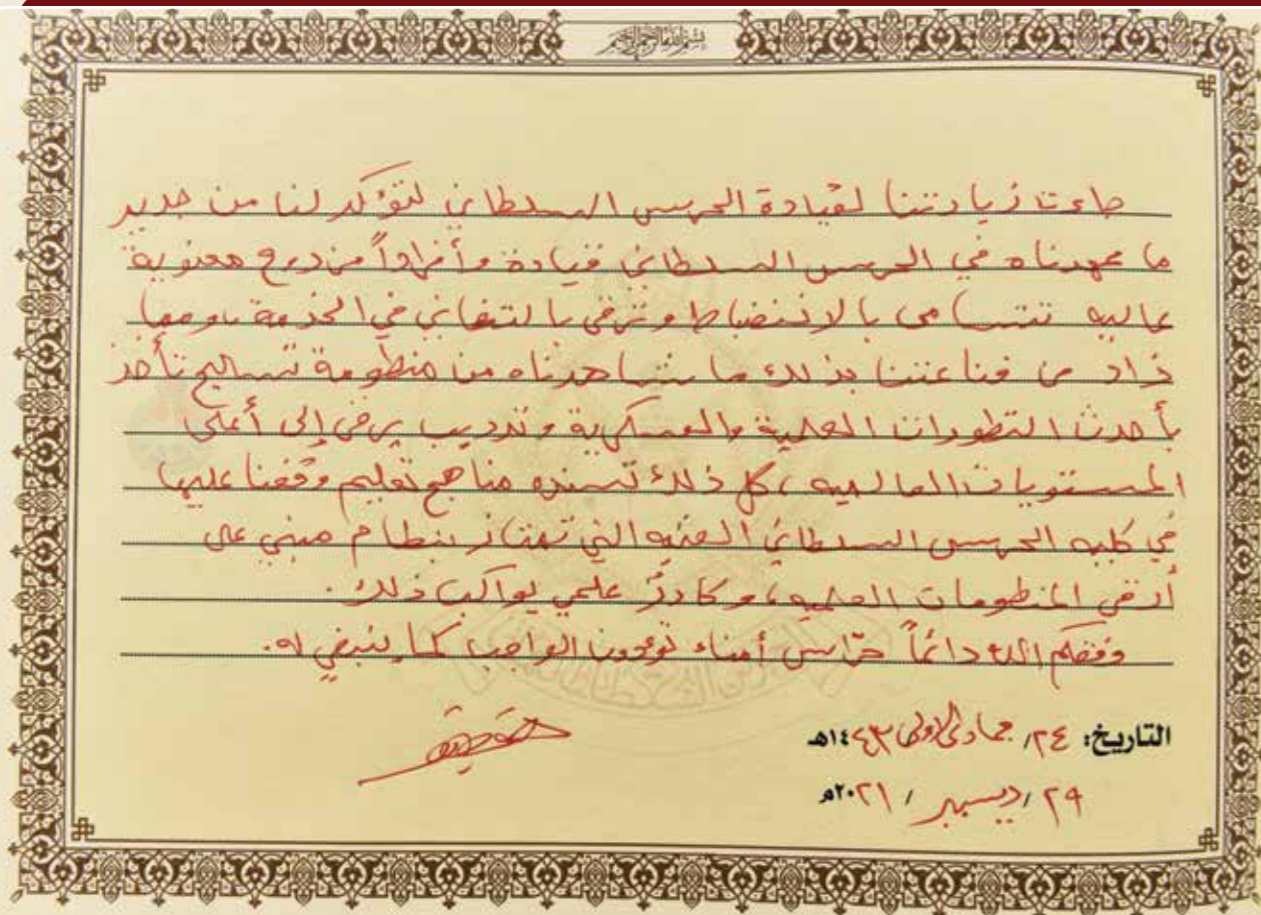 بسم الله الرحمن الرحيم
جاءت زيارتنا لقيادة الحرس السلطاني لتؤكد لنا من جديد
ما عهدناه في الحرس السلطاني قيادة وأفراداً من روح معنوية
عاليه تتسامى بالانضباط وترقى بالتفاني في الخدمة، ومما
زاد من قناعتنا بذلك ما شاهدناه من منظومة تسليح تأخذ
بأحدث التطورات العلمية والعسكرية وتدريب يرقى إلى أعلى
المستويات العالميه، كل ذلك تسنده مناهج تعليم وقفنا عليها
في كليه الحرس السلطاني التقنيه التي تمتاز بنظام مبني على
أرقى المنظومات العلميه، وكادرٌ علمي يواكب ذلك.
وفقكم الله دائماً حرّاس أمناء تؤدون الواجب كما ينبغي له.
التاريخ: ٢٤/ جمادى الأولى ١٤٤٣هـ
٢٩/ ديسمبر / ٢٠٢١م